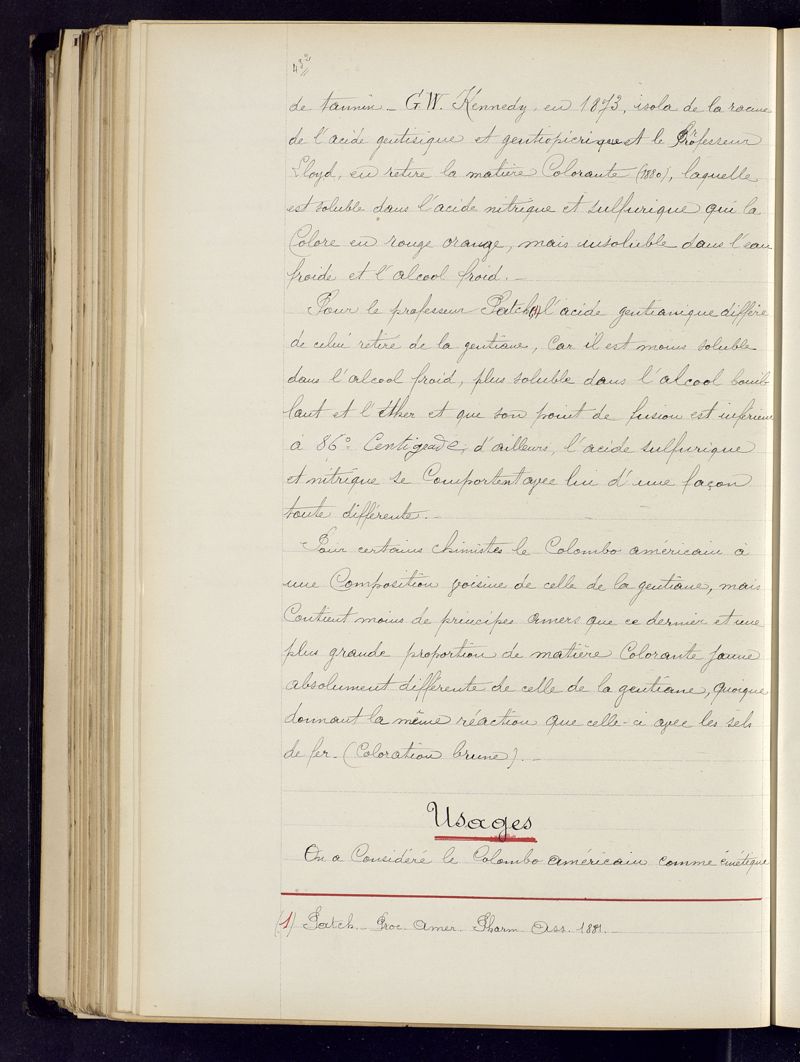 432
de tannin _ G.W. Kennedy, en 1873, isola de la racine
de l'acide gentisique et gentiopicrique et le Professeur
Lloyd, en retire la matière Colorante (1880), laquelle
est soluble dans l'acide nitrique et sulfurique qui la
Colore en rouge orange, mais insoluble dans l'eau
froide et l'alcool froid. _
Pour le professeur Patch (1) l'acide gentianique diffère
de celui retiré de la gentiane, Car il est moins soluble
dans l'alcool froid, plus soluble dans l'alcool bouil-
lant et l'éther et que son point de fusion est inférieur
à 86° Centigrade, d'ailleurs, l'acide sulfurique
et nitrique se Comportent avec lui d'une façon
toute différente. _
Pour certains Chimistes le Colombo américain à
une Composition voisine de celle de la gentiane, mais
Contient moins de principes amers que ce dernier et une
plus grande proportion de matière Colorante jaune
absolument différente de celle de la gentiane, quoique
donnant la même réaction que celle-ci avec les sels
de fer. (Coloration brune). _
Usages
On a Considéré le Colombo américain comme émétique
(1) Patch _ Proc. Amer. Pharm Ass. 1881. _